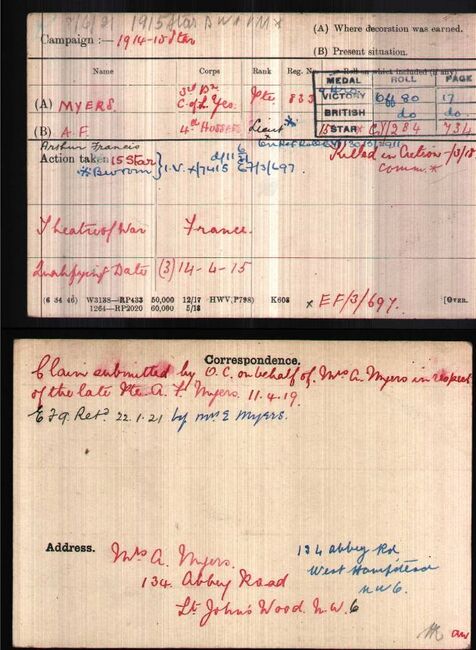 1915 Star
(A) Where decoration was earned.
Campaign :— 1914-15 Star
(B) Present situation.
Name Corps Rank Reg. No. Roll on which included (if any)
MEDAL ROLL PAGE
(A) MYERS 3rd Bn C. of L. Yeo. Pte. 833
VICTORY Off 80 17
BRITISH do do
(B) A.F. 4th Hussars Lieut *
15 STAR CY/28A 734
Arthur Francis
Action taken 15 Star
I.V. x/7415 EF/3/697.
Killed in Action -/3/18
Comm. *
Theatre of War France.
Qualifying Date (3) 14-4-15
(6 34 46) W3138—RP433 50,000 12/17 HWV,P798) K608
1264—RP2020 60,000 5/18
x EF/3/697.
[OVER.
Correspondence.
Claim submitted by O.C. on behalf of Mrs A. Myers in respect
of the late Pte. A. F. Myers. 11.4.19.
22.1.21 by Mrs E Myers.
Address. Mrs A. Myers.
134 Abbey Road
St. John's Wood. N.W.6
134 Abbey Rd,
West Hampstead
N.W 6.